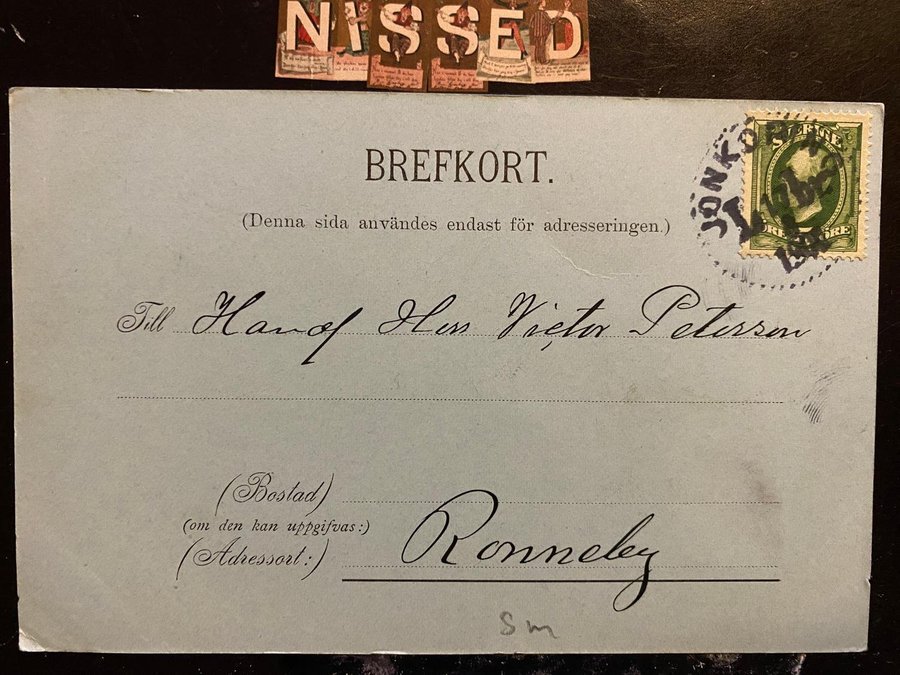 NISSED
BREFKORT.
(Denna sida användes endast för adresseringen.)
SVERIGE
JÖNKÖPING
ÖRE 5 ÖRE
Till Handl Herr Victor Peterson
(Bostad)
(om den kan uppgifvas:)
(Adressort:)
Ronneby
Sm